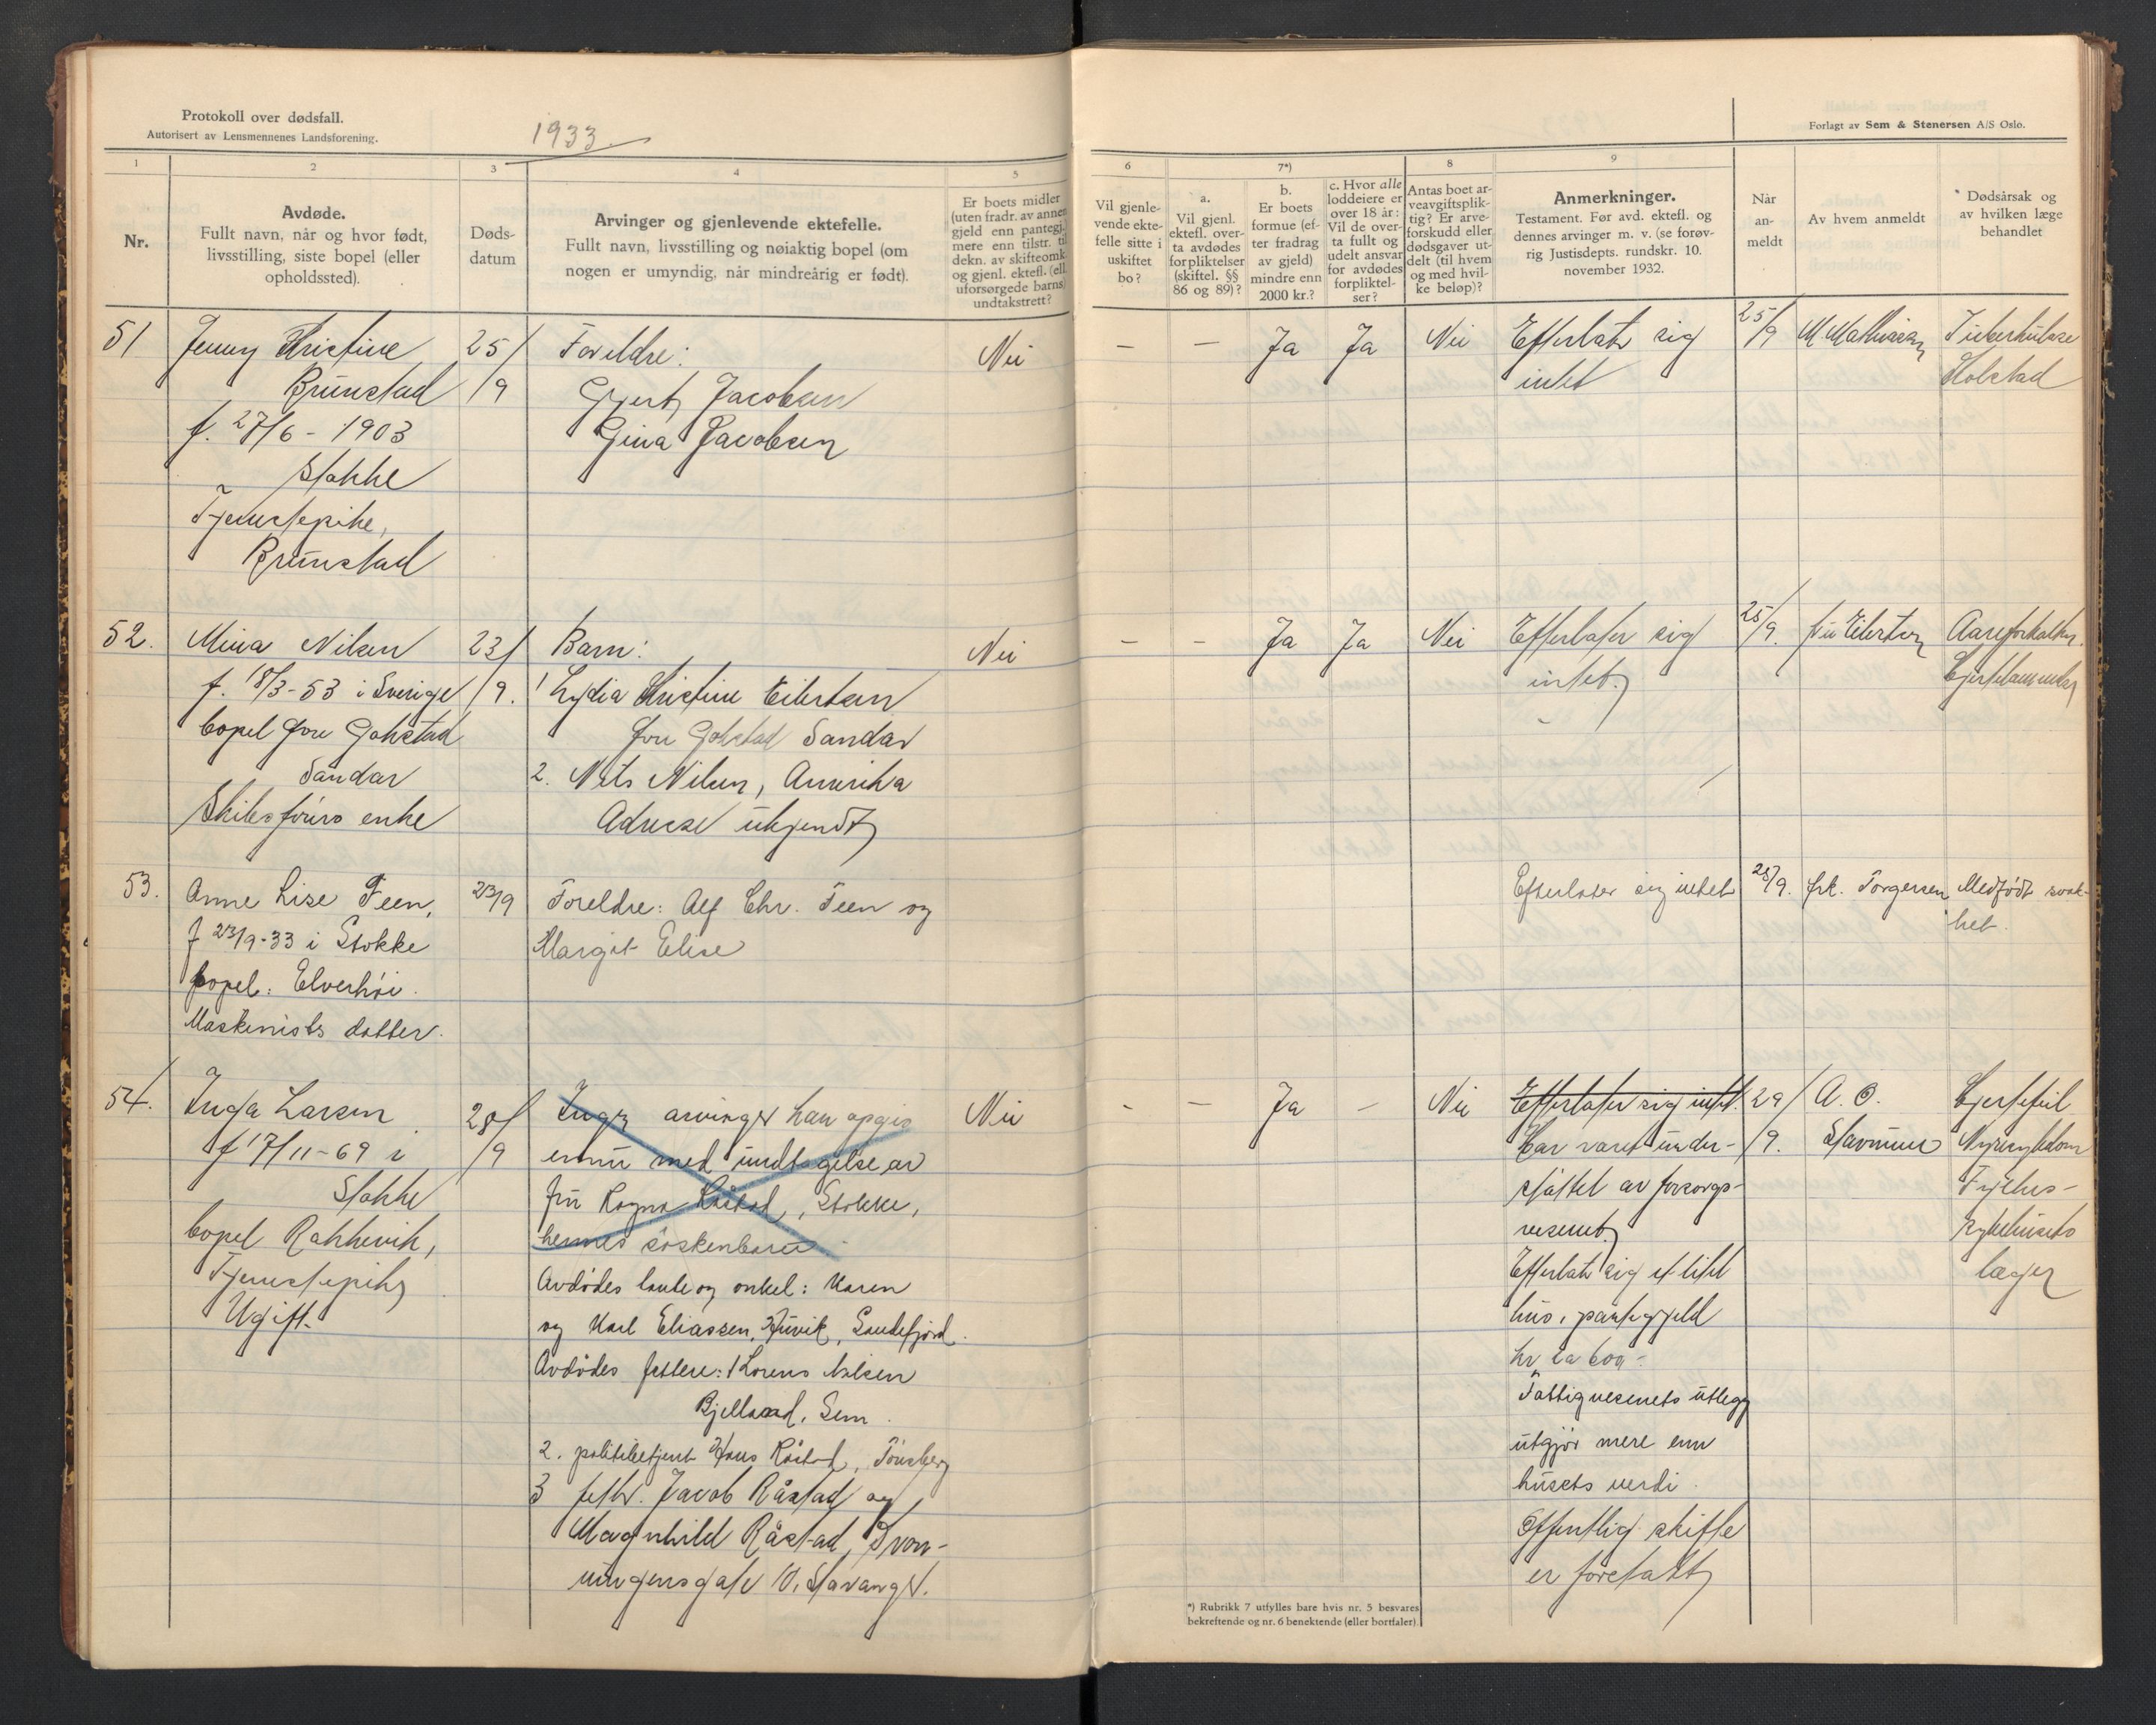 Protokoll over dødsfall.
Autorisert av Lensmennenes Landsforening.
1933.
1
2
3
4
5
Nr.
Avdøde.
Fullt navn, når og hvor født,
livsstilling, siste bopel (eller
opholdssted).
Døds-
datum
Arvinger og gjenlevende ektefelle.
Fullt navn, livsstilling og nøiaktig bopel (om
nogen er umyndig, når mindreårig er født).
Er boets midler
(uten fradr. av annen
gjeld enn pantegj.)
mere enn tilstr. til
dekn. av skifteomk.
og gjenl. ektef. (ell.
uforsørgede barns)
undtakstrett?
51
Jenny Kristine
Brunstad
f. 27/6 - 1903
Stokke
Tjenestepike,
Brunstad
25/
/9
Foreldre:
Gjert Jacobsen
Gina Jacobsen
Nei
52.
Mina Nilsen
f. 18/3-53 i Sverige
bopel Gokstad
Sandar
Skibsførers enke
23/
/9.
Barn:
1 Lydia Kristine Eilertsen
Gokstad Sandar
2. Nils Nilsen, Amerika
Adresse ukjendt
Nei
53.
Anne Lise Feen,
f 23/9-33 i Stokke
bopel: Elverhöi.
Maskinists datter.
23/9
Foreldre: Alf Chr. Feen og
Margit Elise
54.
Inga Larsen
f 17/11-69 i
Stokke
bopel Rakkevik,
Tjenestepike
Ugift.
28/
/9
Ingen arvinger kan opgis
ennu med undtagelse av
fru Ragna Råstad, Stokke,
hennes söskenbarn
Avdödes tante og onkel: Karen
og Karl Eliassen, Huvik, Sandefjord.
Avdödes fettere: 1 Lorens Nilsen
Bjelland, Sem.
2. politibetjent Hans Råstad, Tönsberg
3 fetter Jacob Råstad og
Magnhild Råstad,
10, Stavanger.
Nei
Forlagt av Sem & Stenersen A/S Oslo.
6
7*)
8
9
Vil gjenle-
vende ekte-
felle sitte i
uskiftet
bo?
a.
Vil gjenl.
ektefl. over-
ta avdødes
forpliktelser
(skiftel. §§
86 og 89)?
b.
Er boets
formue (ef-
ter fradrag
av gjeld)
mindre enn
2000 kr.?
c. Hvor alle
loddeiere er
over 18 år:
Vil de over-
ta fullt og
udelt ansvar
for avdødes
forpliktel-
ser?
Antas boet ar-
veavgiftsplik-
tig? Er arve-
forskudd eller
dødsgaver ut-
delt (til hvem
og med hvil-
ke beløp)?
Anmerkninger.
Testament. Før avd. ektefl. og
dennes arvinger m. v. (se forøv-
rig Justisdepts. rundskr. 10.
november 1932.
Når
an-
meldt
Av hvem anmeldt
Dødsårsak og
av hvilken læge
behandlet
- - Ja Ja Nei
Efterlater sig
intet
25/9
M. Mathisen
Tuberkulose
Holstad
- - Ja Ja Nei
Efterlater sig
intet.
25/9.
fru Eilertsen
Aareforkalkn.
Efterlater sig intet
28/9.
frk. Torgersen
Medfödt svak-
het.
- - Ja - Nei
Efterlater sig intet.
Har været under-
støttet av forsorgs-
vesenet.
Efterlater sig et litet
hus, pantegjeld
kr. ca 600-.
Fattigvesenets utlegg
utgjör mere enn
husets verdi.
Offentlig skifte
er foretatt
29/
/9.
A. O.
Stavnum
Hjertefeil
Nyresykdom
Fylkes-
sykehusets
læger
*) Rubrikk 7 utfylles bare hvis nr. 5 besvares
bekreftende og nr. 6 benektende (eller bortfaler).